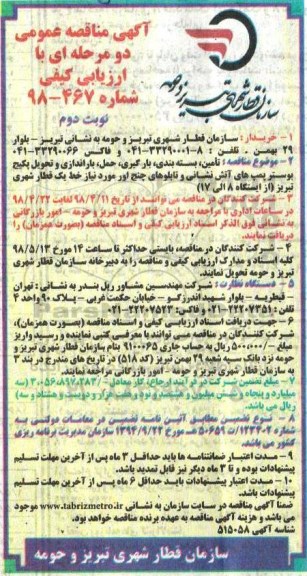 آگهی مناقصه عمومی
دو مرحله ای با
ارزیابی کیفی
شماره ۴۶۷-۹۸
نوبت دوم
سازمان قطار شهری تبریز و حومه
۱ - خریدار: سازمان قطار شهری تبریز و حومه به نشانی تبریز - بلوار
۲۹ بهمن. تلفن: ۸-۳۳۲۹۰۰۰۱-۰۴۱ و فاکس ۳۳۲۹۰۰۶۶-۰۴۱
۲ - موضوع مناقصه: تأمین، بسته بندی، بارگیری، حمل، باراندازی و تحویل پکیج
بوستر پمپ های آتش نشانی و تابلوهای جنج اور مورد نیاز خط یک قطار شهری
تبریز (از ایستگاه ۸ الی ۱۷)
۳ - شرکت کنندگان در مناقصه می توانند از تاریخ ۹۸/۴/۱۱ لغایت ۹۸/۴/۲۲
در ساعات اداری با مراجعه به سازمان قطار شهری تبریز و حومه - امور بازرگانی
به نشانی فوق الذکر اسناد ارزیابی کیفی و اسناد مناقصه (بصورت همزمان) را
دریافت نمایند.
۴ - شرکت کنندگان در مناقصه، بایستی حداکثر تا ساعت ۱۴ مورخ ۹۸/۵/۱۳
کلیه اسناد و مدارک ارزیابی کیفی و مناقصه را به دبیرخانه سازمان قطار شهری
تبریز و حومه تحویل نمایند.
۵ - دستگاه نظارت: شرکت مهندسین مشاور ریل بندر به نشانی: تهران
- قیطریه - بلوار شهید اندرزگو - خیابان حکمت غربی - پلاک ۹۰ واحد ۴
تلفن: ۲۲۲۰۷۳۵۱-۰۲۱ و فاکس: ۲۲۲۰۷۵۲۳-۰۲۱
۶ - جهت دریافت اسناد ارزیابی کیفی و اسناد مناقصه (بصورت همزمان)،
شرکت کنندگان در مناقصه می توانند با معرفی کتبی نماینده و رسید واریز
مبلغ ۵/۰۰۰/۰۰۰ ریال به حساب جاری ۹۱۰۰۰۶۵ بنام سازمان قطار شهری تبریز و
حومه نزد بانک سپه شعبه ۲۹ بهمن تبریز (کد ۵۱۸) در تاریخ های مندرج در بند ۳
به سازمان قطار شهری تبریز و حومه - امور بازرگانی مراجعه نمایند.
۷ - مبلغ تضمین شرکت در فرآیند ارجاع کار معادل
میلیارد و پنجاه و شش میلیون و هشتصد و نود و هفت هزار و دویست و هشتاد و سه)
ریال می باشد.
۸ - نوع تضمین مطابق آئین نامه تضمین در معاملات دولتی به
شماره ۱۲۳۴۰۲/ت ۵۰۶۵۹ هـ مورخ ۱۳۹۴/۹/۲۲ سازمان مدیریت برنامه ریزی
کشور می باشد.
۹ - مدت اعتبار ضمانتنامه ها باید حداقل ۳ ماه پس از آخرین مهلت تسلیم
پیشنهادات بوده و تا ۳ ماه دیگر نیز قابل تمدید باشد.
۱۰ - مدت اعتبار پیشنهادات باید حداقل ۶ ماه پس از آخرین مهلت تسلیم
پیشنهادات باشد.
ضمناً آگهی مناقصه در سایت سازمان به نشانی www.tabrizmetro.ir موجود
می باشد و هزینه آگهی مناقصه به عهده برنده مناقصه خواهد بود.
شناسه آگهی ۵۱۵۰۵۸
سازمان قطار شهری تبریز و حومه